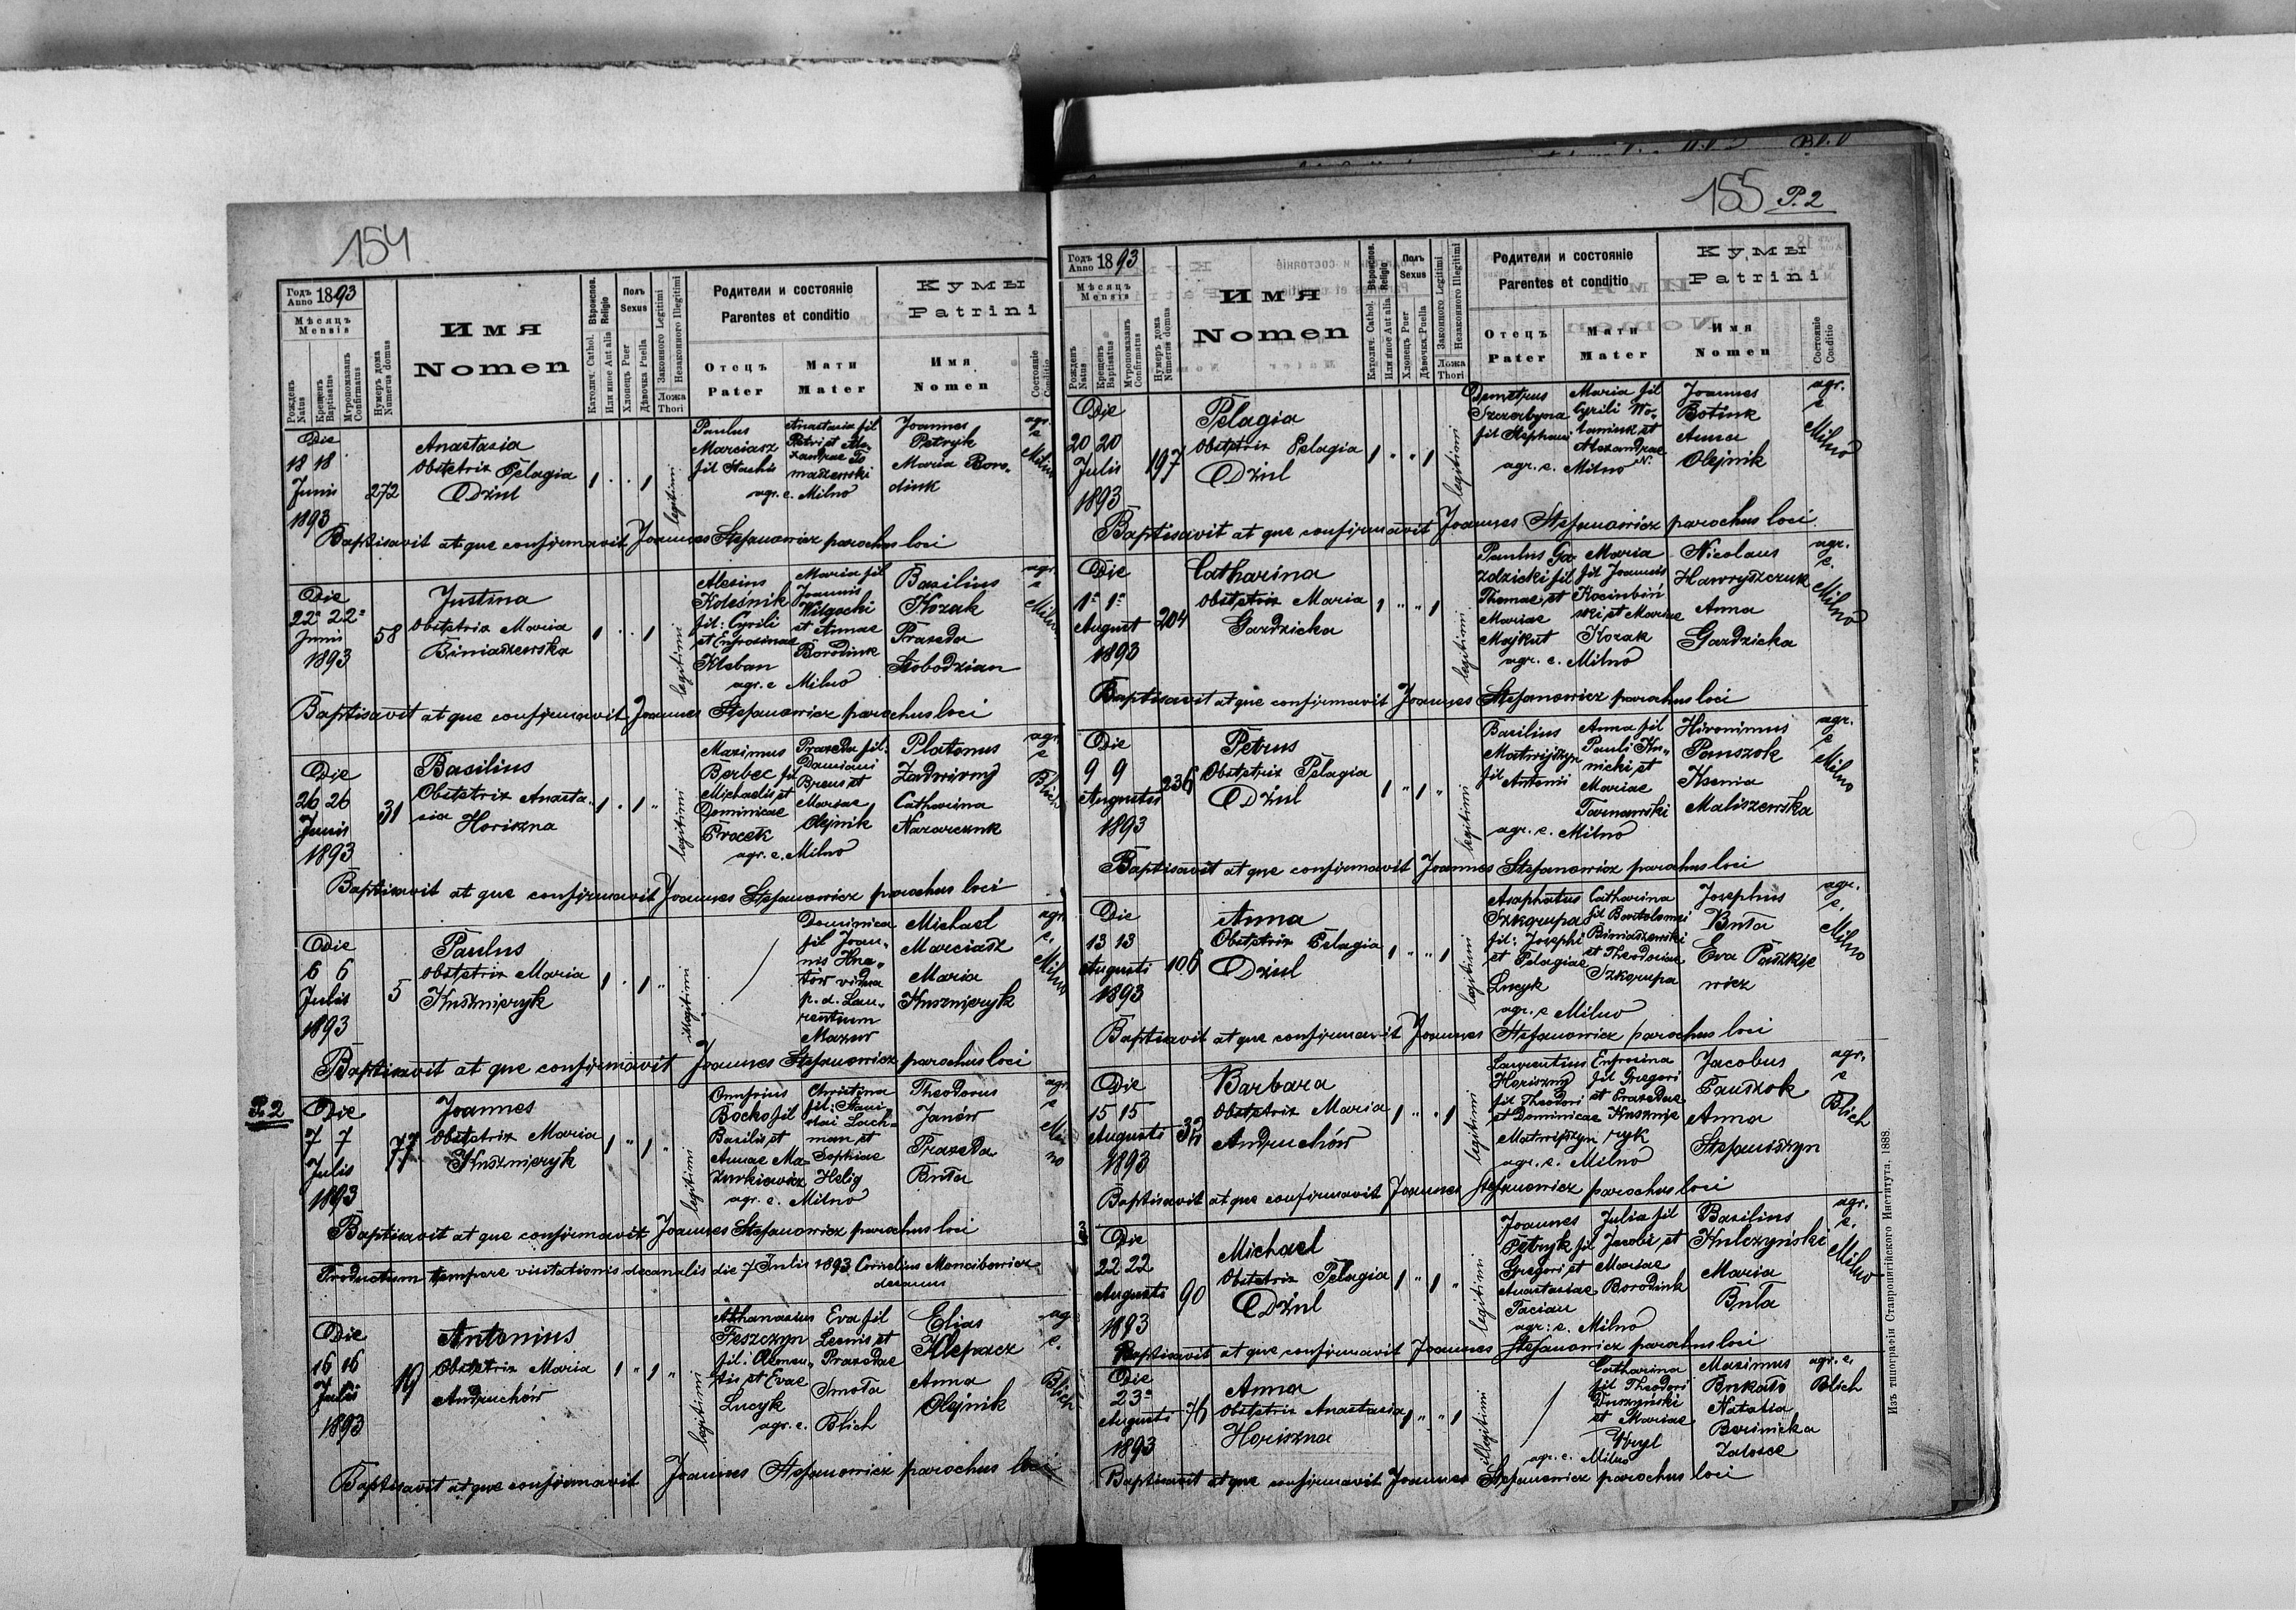 154
Годъ Anno 1893
Мѣсяцъ Mensis
Рожденъ Natus
Крещенъ Baptisatus
Муропомазанъ Confirmatus
Нумеръ дома Numerus domus
Имя
Nomen
Вѣроиспов. Religio
Католич. Cathol.
Или иное Aut alia
Полъ Sexus
Хлопецъ Puer
Дѣвочка Puella
Законного Legitimi
Незаконного Illegitimi
Ложа Thori
Родители и состоянiе
Parentes et conditio
Отецъ Pater
Мати Mater
Кумы
Patrini
Имя Nomen
Состоянiе Conditio
Die
18 18
Junii
1893
272
Anastasia
Obstetrix Pelagia
Dziul
1 . . 1
legitimi
Paulus
Marciasz
fil Stachii
Anastasia fil
Petri et Ale-
xandrae To
maszewski
agr. e. Milno
Joannes
Petryk
Maria Boro-
diuk
agr. e Milno
Baptisavit atque confirmavit Joannes Stefanowicz parochus loci
Die
22 22
Junii
1893
58
Justina
Obstetrix Maria
Biniaszewska
1 . . 1
legitimi
Alexius
Koleśnik
fil: Cyrili
et Eufrosinae
Kleban
Maria fil
Joannis
Wilgocki
et Annae
Borodiuk
agr. e Milno
Basilius
Kozak
Praxeda
Słobodzian
agr. e Milno
Baptisavit atque confirmavit Joannes Stefanowicz parochus loci
Die
26 26
Junii
1893
31
Basilius
Obstetrix Anasta-
sia Horiszna
1 . 1 "
legitimi
Maximus
Berbec fil
Michaelis et
Dominicae
Procek
Praxeda fil:
Damiani
Breus et
Mariae
Olejnik
agr. e. Milno
Platonus
Zadwirny
Catharina
Nazarczuk
agr. e Blich
Baptisavit atque confirmavit Joannes Stefanowicz parochus loci
Die
6 6
Julii
1893
5
Paulus
Obstetrix Maria
Kusznieryk
1 . 1 "
illegitimi
Dominica
fil Joan-
nis Hna-
tów vidua
p. d. Lau-
rentium
Mazur
Michael
Marciasz
Maria
Kusznieryk
agr. e. Milno
Baptisavit atque confirmavit Joannes Stefanowicz parochus loci
P. 2
Die
7 7
Julii
1893
77
Joannes
Obstetrix Maria
Kusznieryk
1 " 1 "
legitimi
Onufrius
Boćko fil
Basilii et
Annae Ma-
zurkiewicz
Christina
fil: Stani-
slai Lach-
man et
Sophiae
Helig
agr. e. Milno
Theodorus
Janów
Praxeda
Buła
agr. e Milno
Baptisavit atque confirmavit Joannes Stefanowicz parochus loci
Productum tempore visitationis decanalis die 7 Julii 1893 Cornelius Mencibowicz
decanus
Die
16 16
Julii
1893
19
Antonius
Obstetrix Maria
Andruchów
1 " 1 "
legitimi
Athanasius
Feszczyn
fil: Clemen-
tis et Evae
Lucyk
Eva fil
Leonis et
Praxedae
Smoła
agr. e. Blich
Elias
Klepacz
Anna
Olejnik
agr. e. Blich
Baptisavit atque confirmavit Joannes Stefanowicz parochus loci
155 P. 2
Годъ Anno 1893
Мѣсяцъ Mensis
Рожденъ Natus
Крещенъ Baptisatus
Муропомазанъ Confirmatus
Нумеръ дома Numerus domus
Имя
Nomen
Вѣроиспов. Religio
Католич. Cathol.
Или иное Aut alia
Полъ Sexus
Хлопецъ Puer
Дѣвочка Puella
Законного Legitimi
Незаконного Illegitimi
Ложа Thori
Родители и состоянiе
Parentes et conditio
Отецъ Pater
Мати Mater
Кумы
Patrini
Имя Nomen
Состоянiе Conditio
Die
20 20
Julii
1893
197
Pelagia
Obstetrix Pelagia
Dziul
1 " " 1
legitimi
Demetrius
Szczerbyna
fil Stephani
Maria fil
Cyrili Wo-
taniuk et
Alexandrae
N.
agr. e. Milno
Joannes
Botiuk
Anna
Olejnik
agr. e Milno
Baptisavit atque confirmavit Joannes Stefanowicz parochus loci.
Die
1 1
August
1893
204
Catharina
Obstetrix Maria
Gazdzicka
1 " " 1
legitimi
Paulus Ga-
zdzicki fil
Thomae et
Mariae
Majkut
Maria
fil Joannis
Kocinbiń
ski et Mariae
Kozak
agr. e. Milno
Nicolaus
Hawryszczuk
Anna
Gazdzicka
agr. e. Milno
Baptisavit atque confirmavit Joannes Stefanowicz parochus loci
Die
9 9
Augusti
1893
236
Petrus
Obstetrix Pelagia
Dziul
1 " 1 "
legitimi
Basilius
Matwijszyn
fil Antonii
Anna fil
Pauli Hu-
nicki et
Mariae
Tarnawski
agr. e. Milno
Hironimus
Pauszok
Ksenia
Maliszewska
agr. e Milno
Baptisavit atque confirmavit Joannes Stefanowicz parochus loci
Die
13 13
Augusti
1893
106
Anna
Obstetrix Pelagia
Dziul
1 " " 1
legitimi
Asaphatus
Szkorupa
fil: Josephi
et Pelagiae
Lucyk
Catharina
fil Bartolomei
Biniaszewski
et Theodoriae
Szkorupa
agr. e Milno
Josephus
Buła
Eva Paszkie
wicz
agr. e. Milno
Baptisavit atque confirmavit Joannes Stefanowicz parochus loci
Die
15 15
Augusti
1893
Barbara
Obstetrix Maria
Andruchów
1 " " 1
legitimi
Laurentius
Horiszny
fil Theodori
et Dominicae
Matwijszyn
Eufrosina
fil Gregori
et Praxedae
Kusznie
ryk
agr. e. Milno
Jacobus
Pauszok
Anna
Stefaniszyn
agr. e Blich
Baptisavit atque confirmavit Joannes Stefanowicz parochus loci
Die
22 22
Augusti
1893
90
Michael
Obstetrix Pelagia
Dziul
1 " 1 "
legitimi
Joannes
Petryk fil
Gregori et
Anastasiae
Pacian
Julia fil
Jacobi et
Mariae
Borodiuk
agr: e. Milno
Basilius
Kulczyński
Maria
Buła
agr. e. Milno
Baptisavit atque confirmavit Joannes Stefanowicz parochus loci
Die
23
Augusti
1893
76
Anna
Obstetrix Anastasia
Horiszna
1 " " 1
illegitimi
Catharina
fil Theodori
Duszyński
et Mariae
Wryl
agr. e. Milno
Maximus
Bukało
Natalia
Berinicka
Załosce
agr. e. Blich
Baptisavit atque confirmavit Joannes Stefanowicz parochus loci
Изъ типографiи Ставропигiйского Института. 1888.